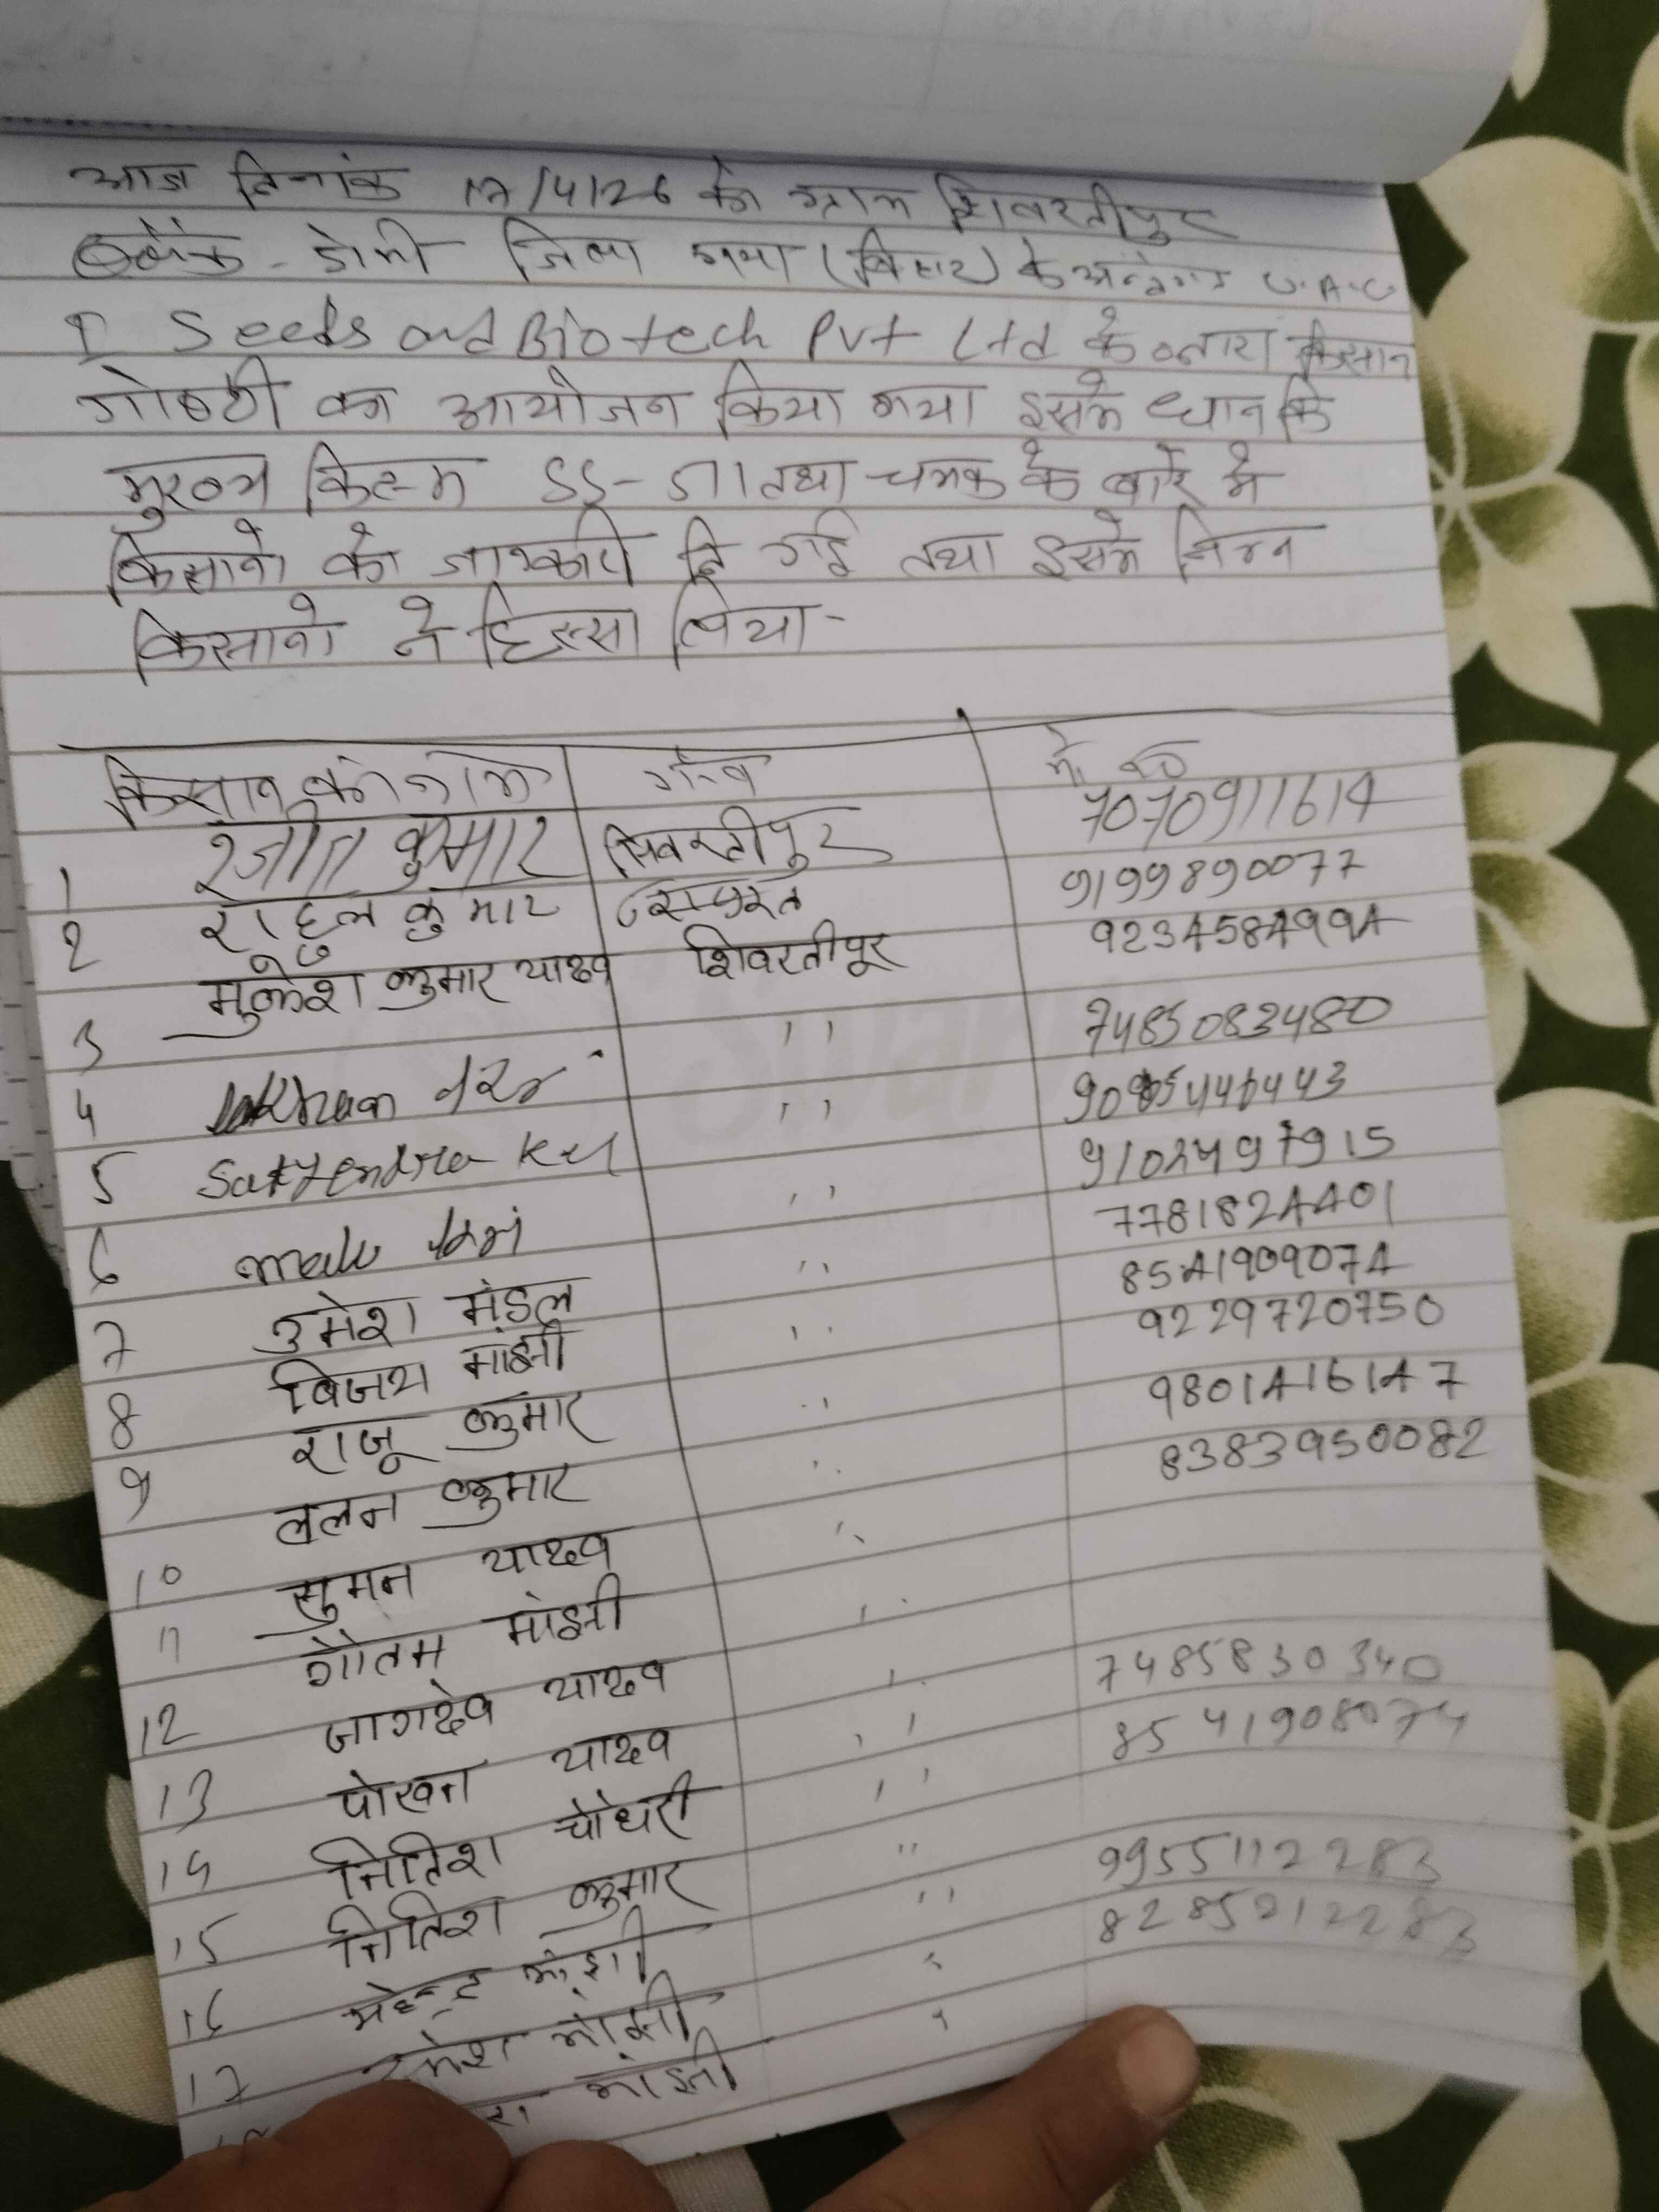 आज दिनांक 17/4/26 को ग्राम शिवरतीपुर
ब्लॉक - डोभी जिला गया (बिहार) के अन्तर्गत U.A.C
Seeds and Biotech Pvt Ltd के द्वारा किसान
गोष्ठी का आयोजन किया गया इसमे धान कि
मुख्य किस्म SS-51 तथा चमक के बारे मे
किसानो को जानकारी दि गई तथा इसमे निम्न
किसानो ने हिस्सा लिया-
किसान का नाम गाँव मो. न०
1 रंजीत कुमार सिवरतीपुर 7070911614
2 राहुल कुमार 9199890077
3 मुकेश कुमार यादव शिवरतीपूर 9234584994
4 Lakhan ,, 7485083480
5 Satyendra Ku ,, 446443
6 ,, 9102497915
7 उमेश मंडल ,, 7781824401
8 विजय मांझी ,, 8541909074
9 राजू कुमार ,, 9229720750
10 ललन कुमार ,, 9801416147
11 सुमन यादव ,, 8383950082
12 गौतम मांझी ,,
13 जागदेव यादव ,,
14 पोखन यादव ,, 7485830340
15 नितिश चौधरी ,, 8541908074
16 नितिश कुमार ,,
17 महेन्द्र मांझी ,, 9955112283
मांझी ,, 8285212283
मांझी